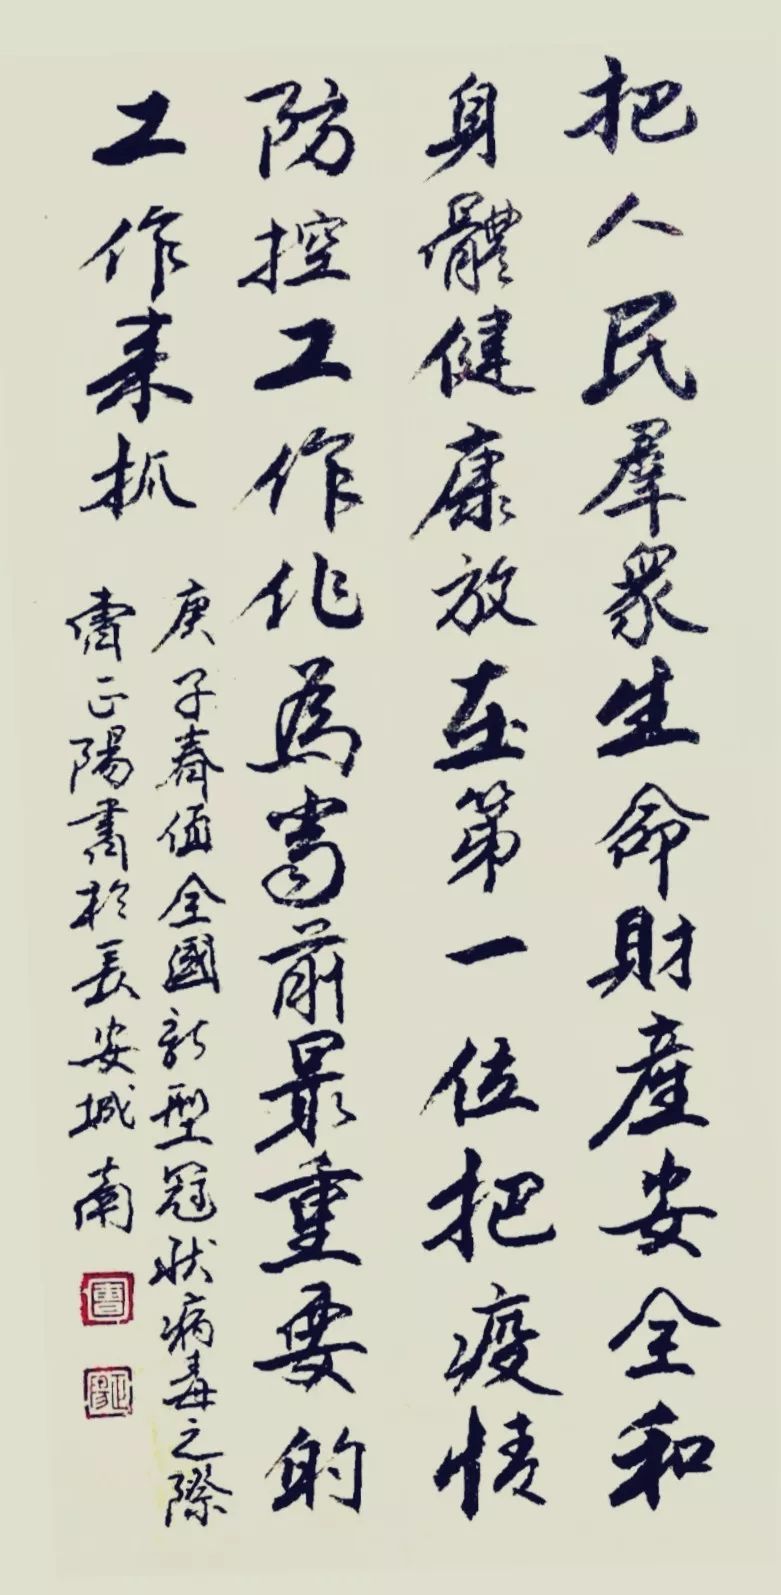 把人民羣衆生命財產安全和
身體健康放在第一位把疫情
防控工作作為當前最重要的
工作来抓
庚子春值全國新型冠狀病毒之際
曹正陽書於長安城南
曹